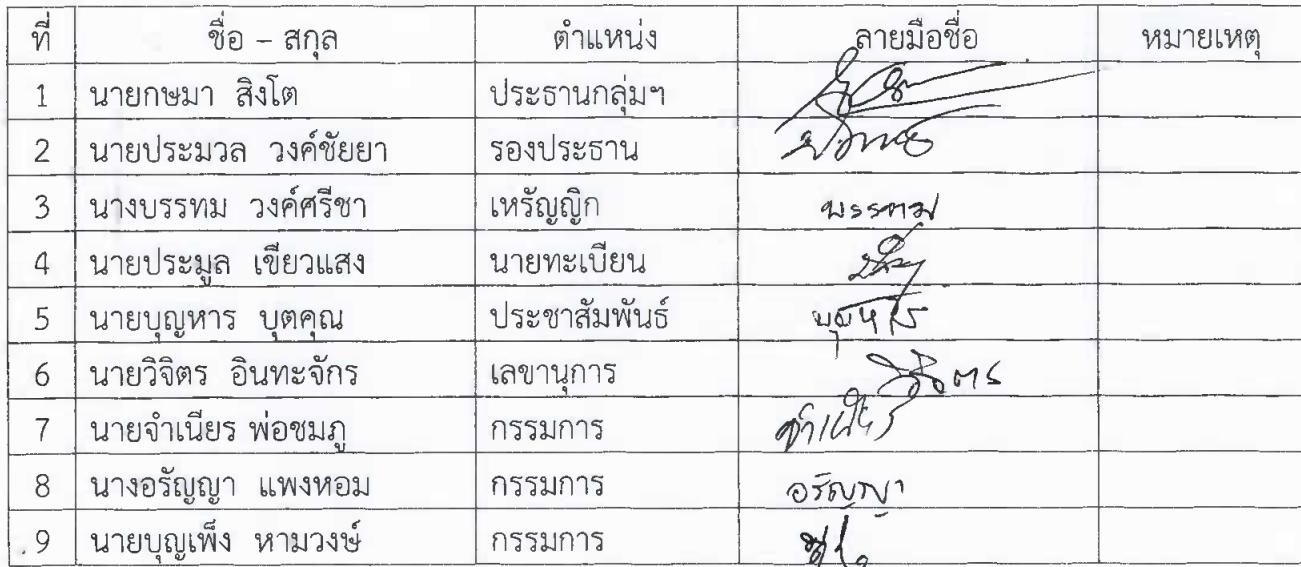 ที่ ชื่อ – สกุล ตำแหน่ง ลายมือชื่อ หมายเหตุ
1 นายกษมา สิงโต ประธานกลุ่มฯ
2 นายประมวล วงค์ชัยยา รองประธาน
3 นางบรรทม วงค์ศรีชา เหรัญญิก บรรทม
4 นายประมูล เขียวแสง นายทะเบียน
5 นายบุญหาร บุตคุณ ประชาสัมพันธ์ บุญหาร
6 นายวิจิตร อินทะจักร เลขานุการ วิจิตร
7 นายจำเนียร พ่อชมภู กรรมการ จำเนียร
8 นางอรัญญา แพงหอม กรรมการ อรัญญา
9 นายบุญเพ็ง หามวงษ์ กรรมการ